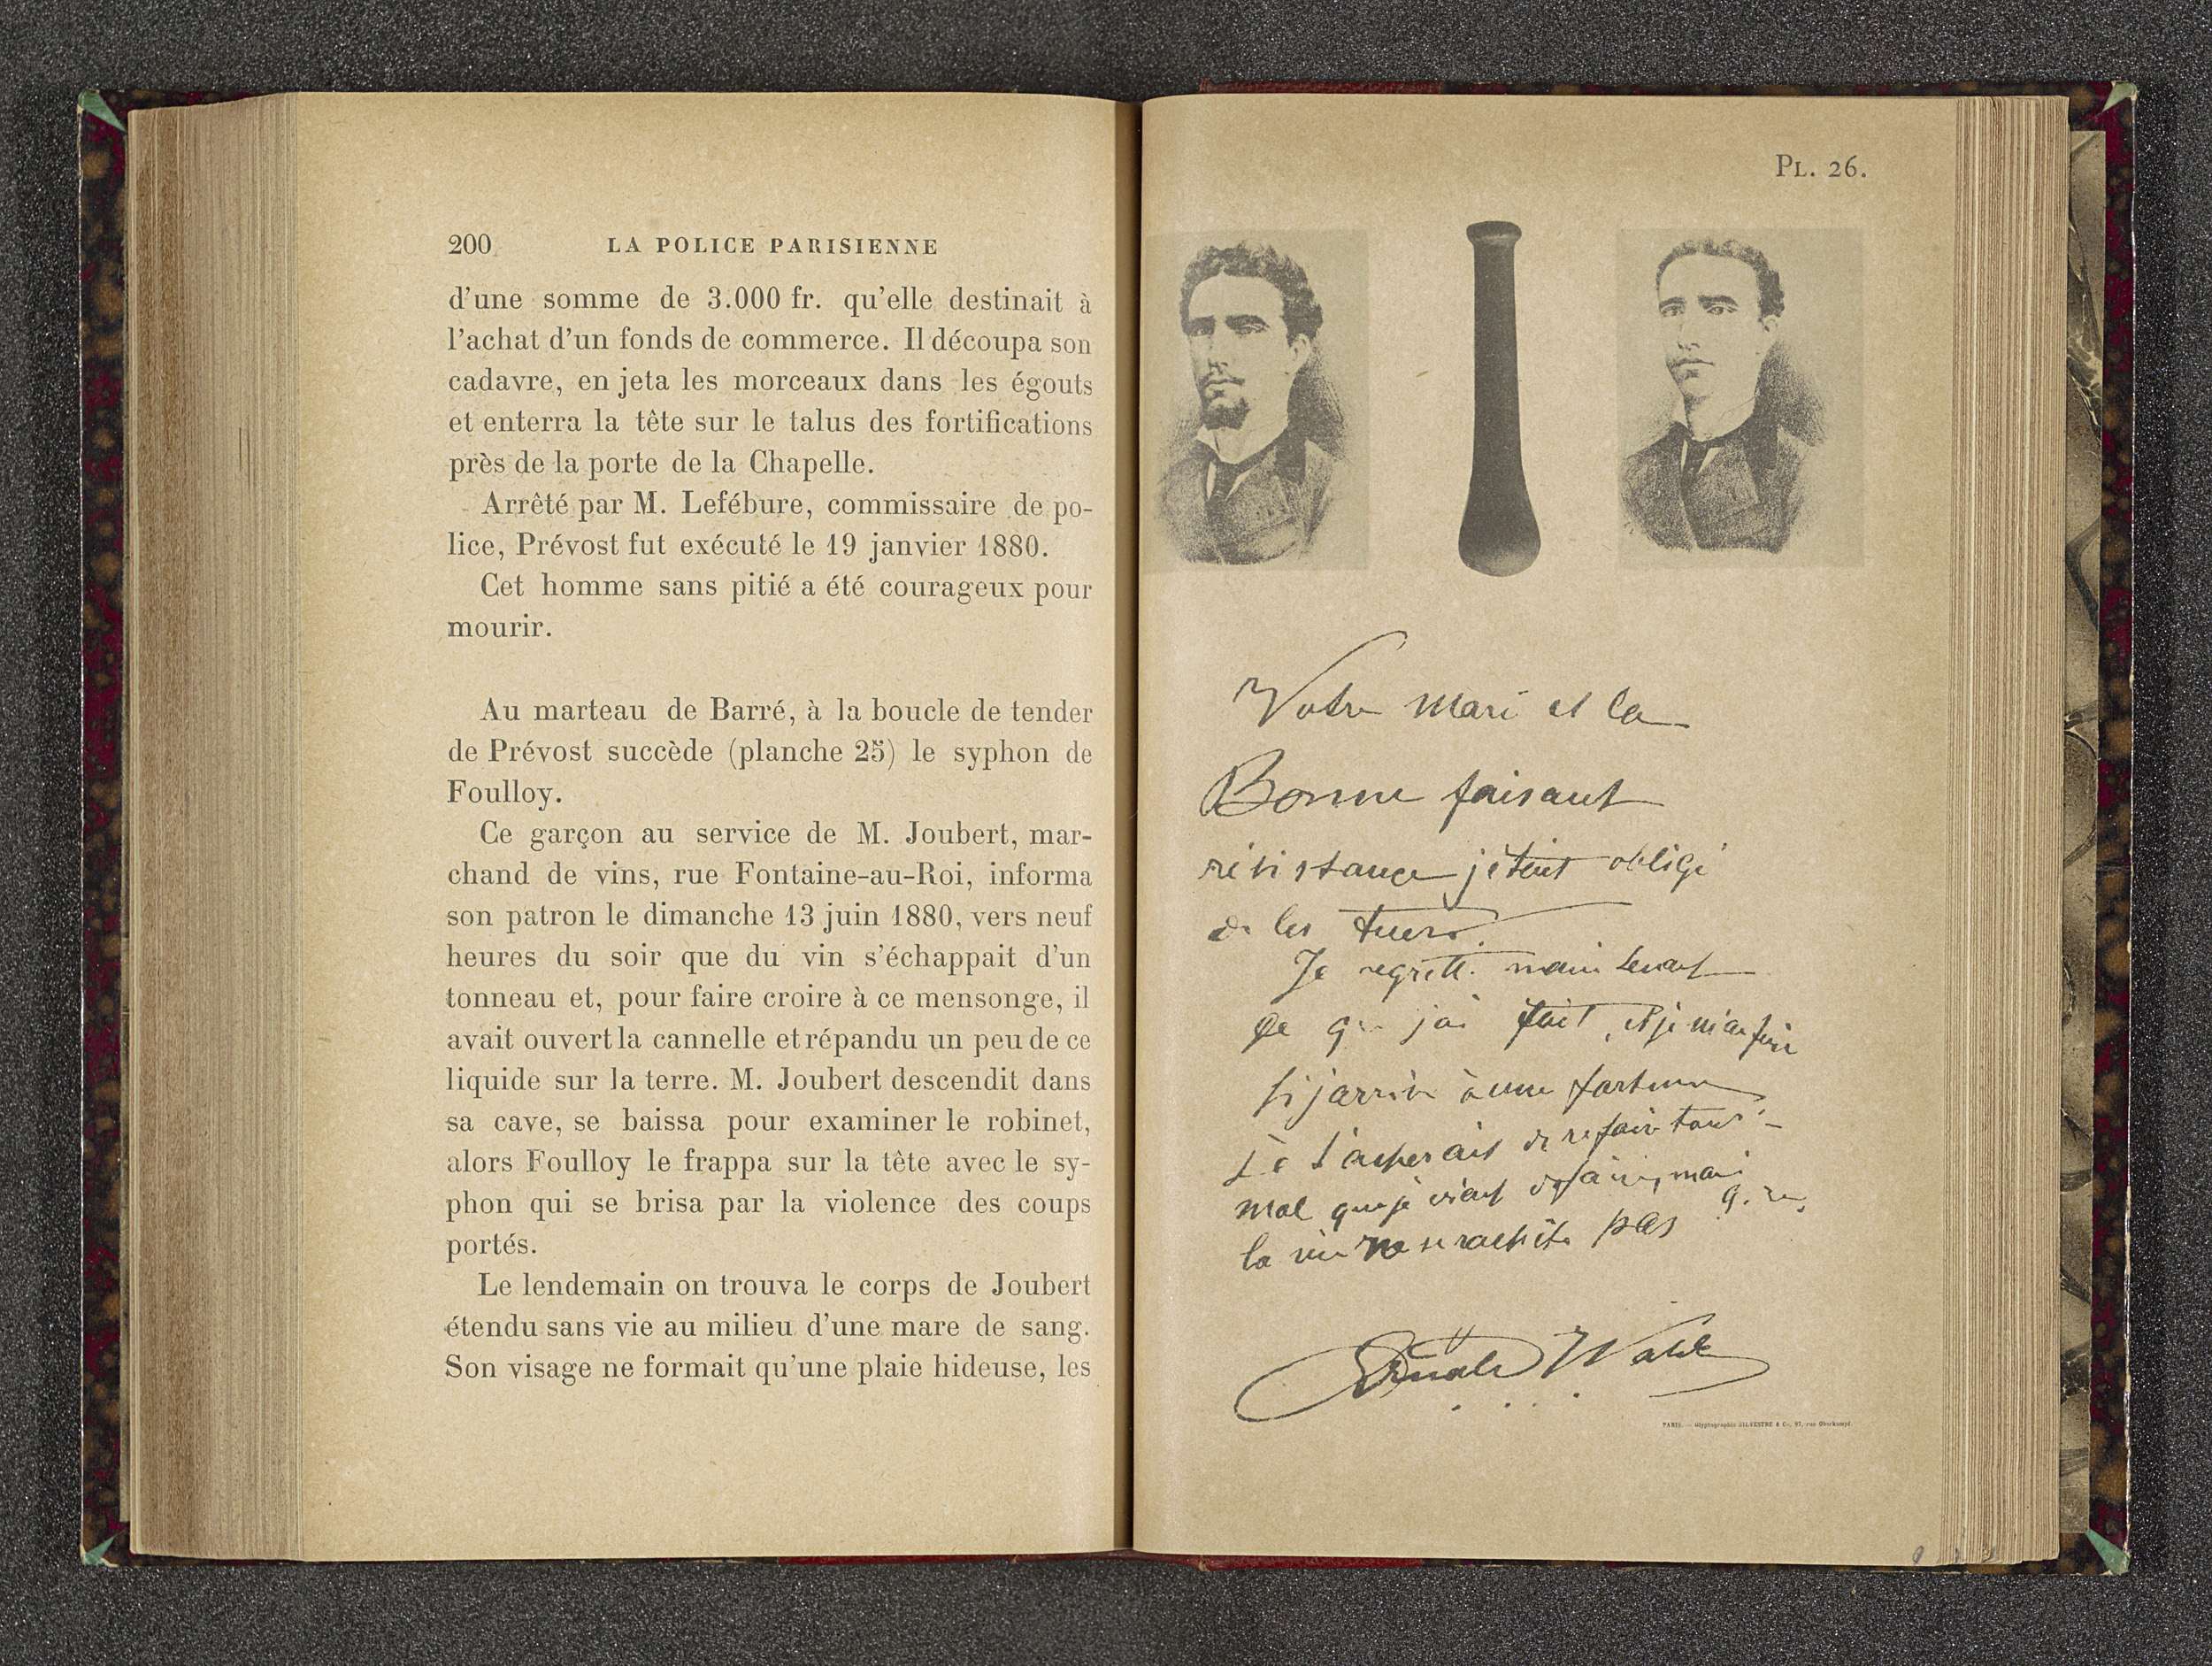 200 LA POLICE PARISIENNE
d'une somme de 3.000 fr. qu'elle destinait à
l'achat d'un fonds de commerce. Il découpa son
cadavre, en jeta les morceaux dans les égouts
et enterra la tête sur le talus des fortifications
près de la porte de la Chapelle.
Arrêté par M. Lefébure, commissaire de po-
lice, Prévost fut exécuté le 19 janvier 1880.
Cet homme sans pitié a été courageux pour
mourir.
Au marteau de Barré, à la boucle de tender
de Prévost succède (planche 25) le syphon de
Foulloy.
Ce garçon au service de M. Joubert, mar-
chand de vins, rue Fontaine-au-Roi, informa
son patron le dimanche 13 juin 1880, vers neuf
heures du soir que du vin s'échappait d'un
tonneau et, pour faire croire à ce mensonge, il
avait ouvert la cannelle et répandu un peu de ce
liquide sur la terre. M. Joubert descendit dans
sa cave, se baissa pour examiner le robinet,
alors Foulloy le frappa sur la tête avec le sy-
phon qui se brisa par la violence des coups
portés.
Le lendemain on trouva le corps de Joubert
étendu sans vie au milieu d'une mare de sang.
Son visage ne formait qu'une plaie hideuse, les
PL. 26.
Votre mari et la
Bonne faisant
résistance j'étais obligé
de les tuers.
Je regrette maintenant
ce que j'ai fait, et je
si j'arrive à une fortune
je tacherais de refair tous
mal que je vient de fair, mai
la vie ne se rachète pas
Wahl
PARIS. — Glyptographie SILVESTRE & Cie, 97, rue Oberkampf.